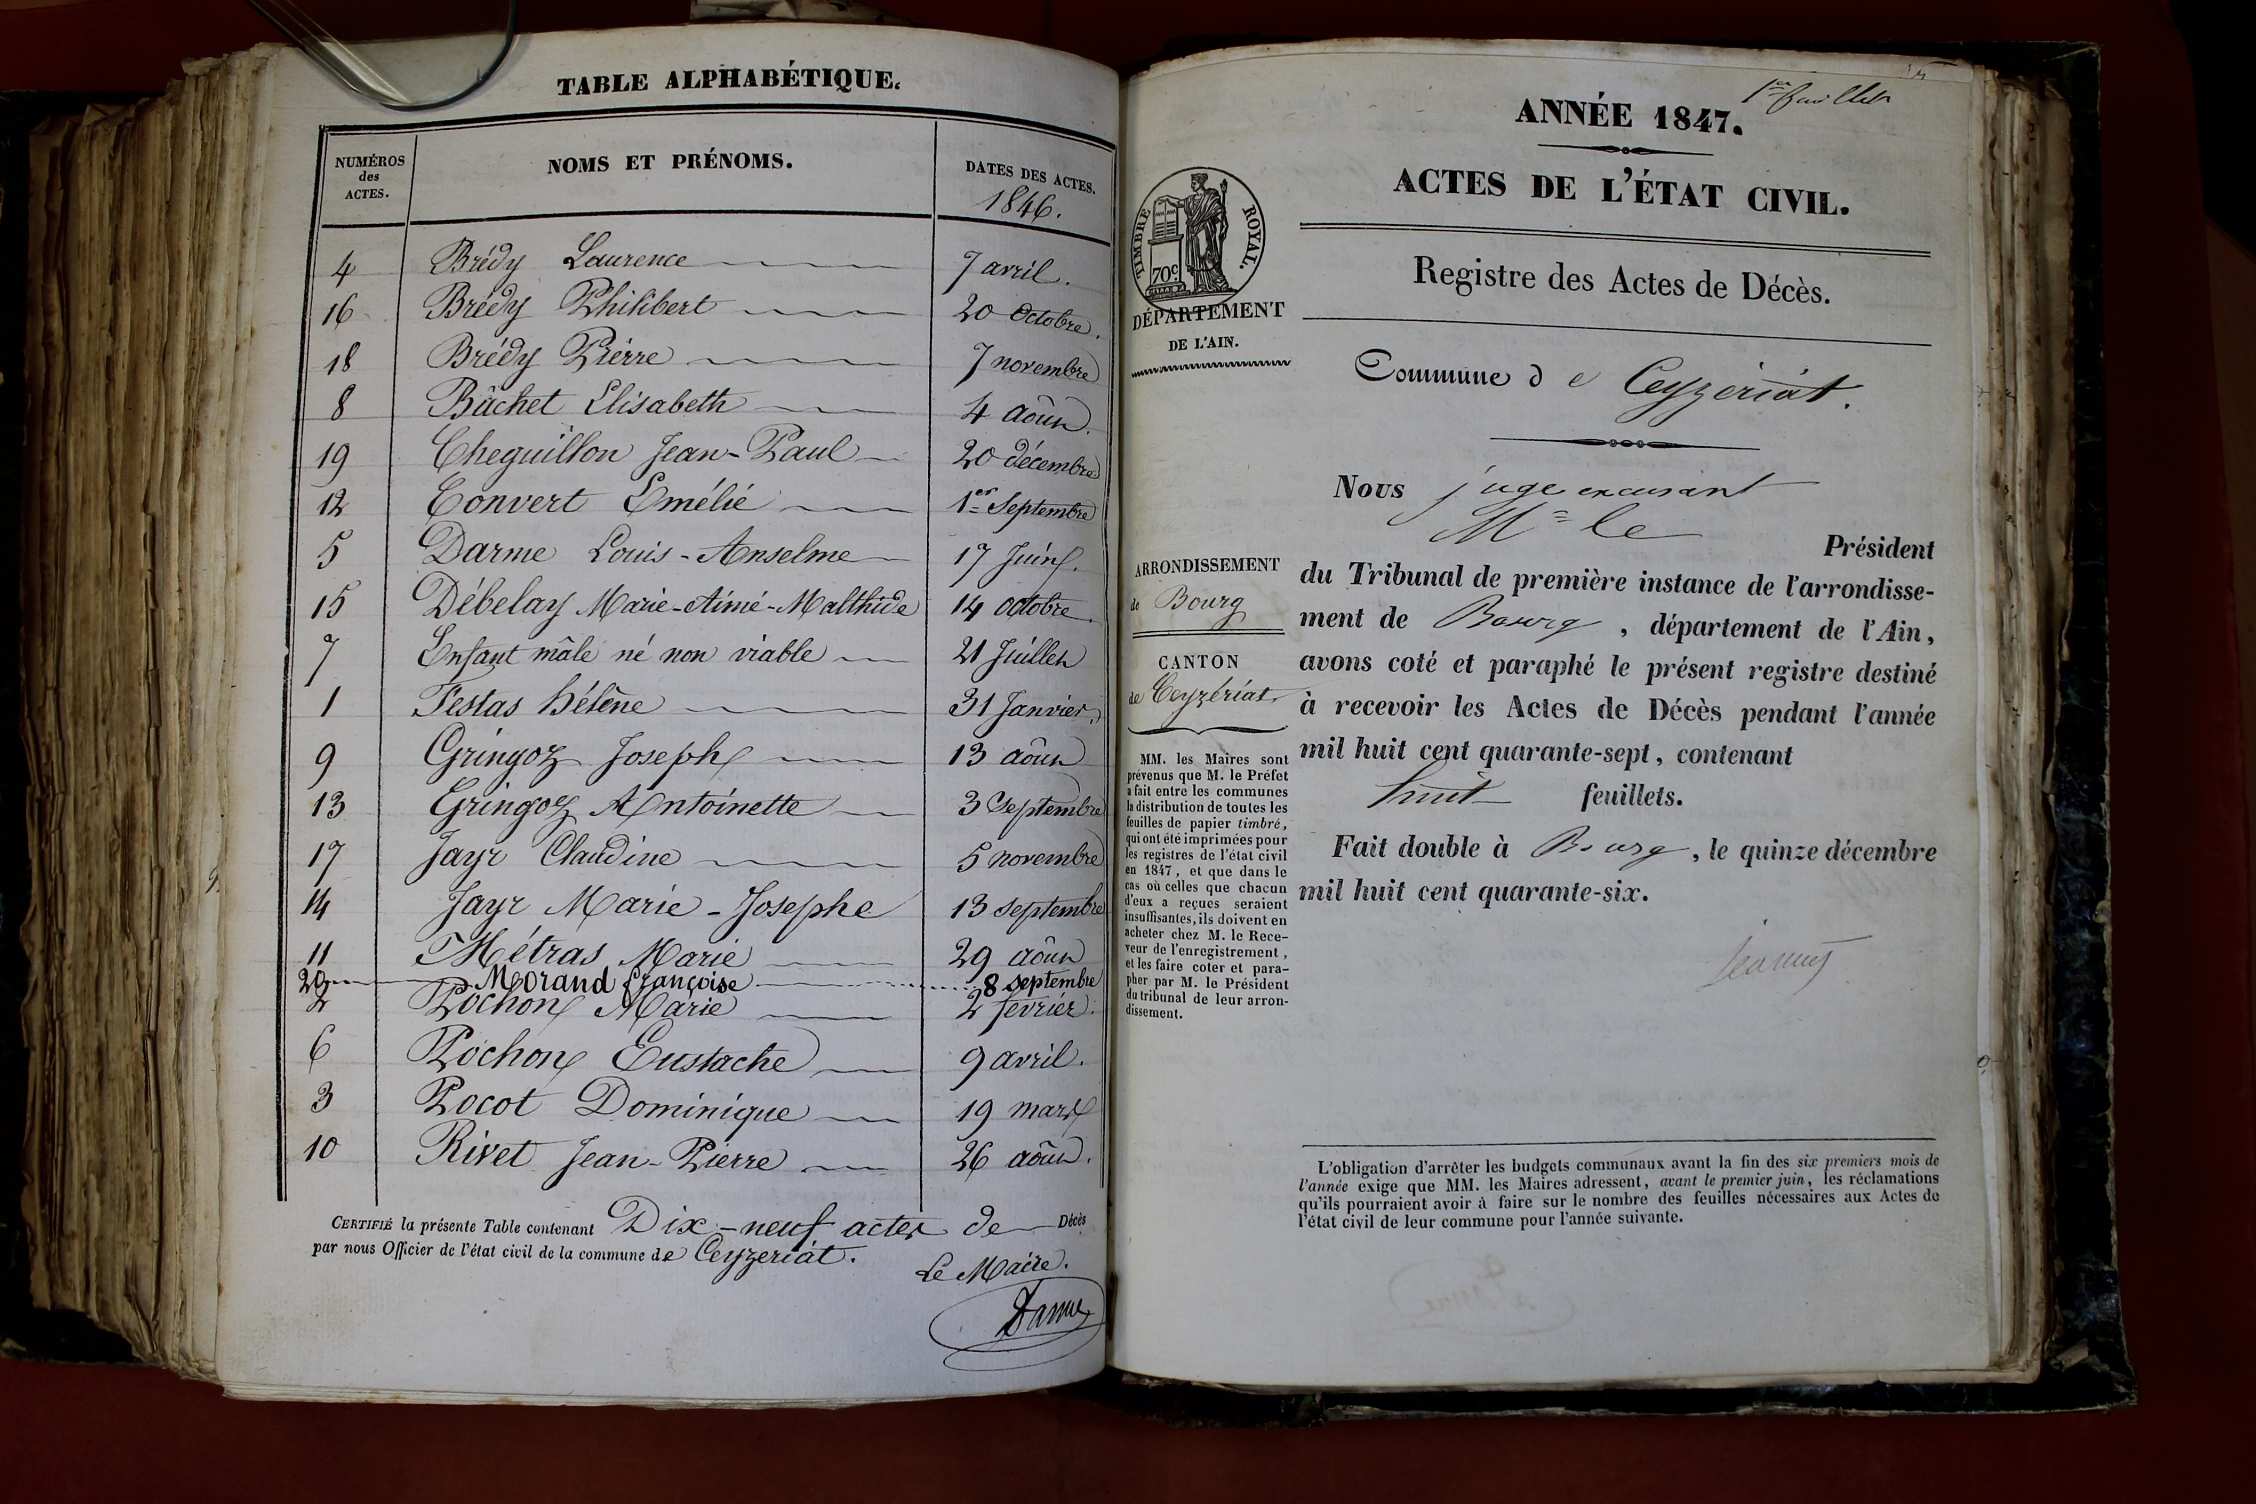 TABLE ALPHABÉTIQUE.
NUMÉROS des ACTES. NOMS ET PRÉNOMS. DATES DES ACTES. 1846.
4 Brédy Laurence 7 avril.
16 Brédy Philibert 20 octobre.
18 Brédy Pierre 7 novembre
8 Bâchet Elisabeth 4 août.
19 Cheguillon Jean-Paul 20 décembre
12 Convert Emélie 1er Septembre
5 Darme Louis-Anselme 17 Juin.
15 Débelay Marie-Aimé-Malthide 14 octobre.
7 Enfant mâle né non viable 21 Juillet
1 Festas hélène 31 Janvier.
9 Gringoz Joseph 13 août
13 Gringoz Antoinette 3 Septembre
17 Jayr Claudine 5 novembre
14 Jayr Marie-Josephe 13 septembre
11 Métras Marie 29 août
20 Morand françoise 8 septembre
2 Pochon Marie 2 fevrier.
6 Pochon Eustache 9 avril.
3 Pocot Dominique 19 mars
10 Rivet Jean-Pierre 26 août.
CERTIFIÉ la présente Table contenant Dix-neuf actes de Décès
par nous Officier de l'état civil de la commune de Ceyzeriat.
Le Maire.
1er feuillet
ANNÉE 1847.
ACTES DE L'ÉTAT CIVIL.
TIMBRE ROYAL.
70c
DÉPARTEMENT
DE L'AIN.
Registre des Actes de Décès.
Commune de Ceyzériat.
ARRONDISSEMENT
de Bourg
CANTON
de Ceyzériat.
MM. les Maires sont
prévenus que M. le Préfet
a fait entre les communes
la distribution de toutes les
feuilles de papier timbré,
qui ont été imprimées pour
les registres de l'état civil
en 1847, et que dans le
cas où celles que chacun
d'eux a reçues seraient
insuffisantes, ils doivent en
acheter chez M. le Rece-
veur de l'enregistrement,
et les faire coter et para-
pher par M. le Président
du tribunal de leur arron-
dissement.
Nous juge excusant
Mr le
Président
du Tribunal de première instance de l'arrondisse-
ment de Bourg, département de l'Ain,
avons coté et paraphé le présent registre destiné
à recevoir les Actes de Décès pendant l'année
mil huit cent quarante-sept, contenant
huit feuillets.
Fait double à Bourg, le quinze décembre
mil huit cent quarante-six.
L'obligation d'arrêter les budgets communaux avant la fin des six premiers mois de
l'année exige que MM. les Maires adressent, avant le premier juin, les réclamations
qu'ils pourraient avoir à faire sur le nombre des feuilles nécessaires aux Actes de
l'état civil de leur commune pour l'année suivante.